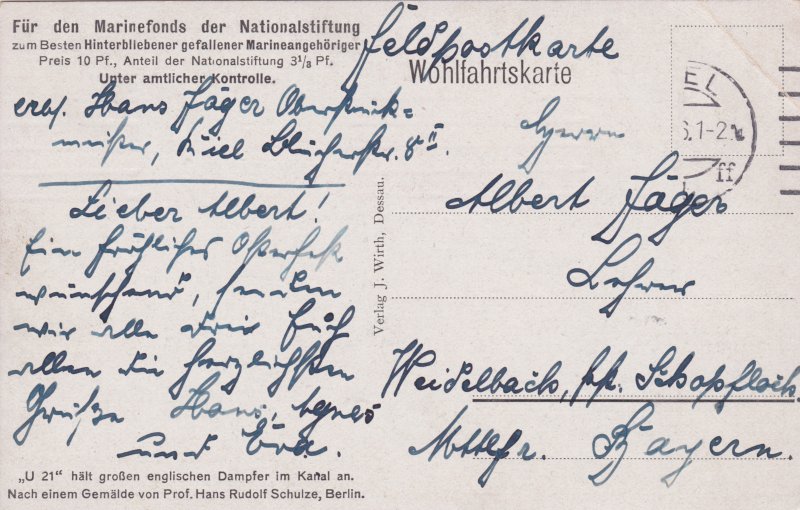 Für den Marinefonds der Nationalstiftung
zum Besten Hinterbliebener gefallener Marineangehöriger
Preis 10 Pf., Anteil der Nationalstiftung 3 1/3 Pf.
Unter amtlicher Kontrolle.
Feldpostkarte
Wohlfahrtskarte
Hans Jäger
meister, Kiel Blücherstr. 8 II
Lieber Albert!
Ein fröhliches Osterfest
wünschend, senden
wir alle drei Euch
allen die herzlichsten
Grüße Hans, Agnes
und Eva.
„U 21“ hält großen englischen Dampfer im Kanal an.
Nach einem Gemälde von Prof. Hans Rudolf Schulze, Berlin.
Verlag J. Wirth, Dessau.
EL
6.1-2
ff
Herrn
Albert Jäger
Lehrer
Weidelbach, Schopfloch
Mttlfr. Bayern.